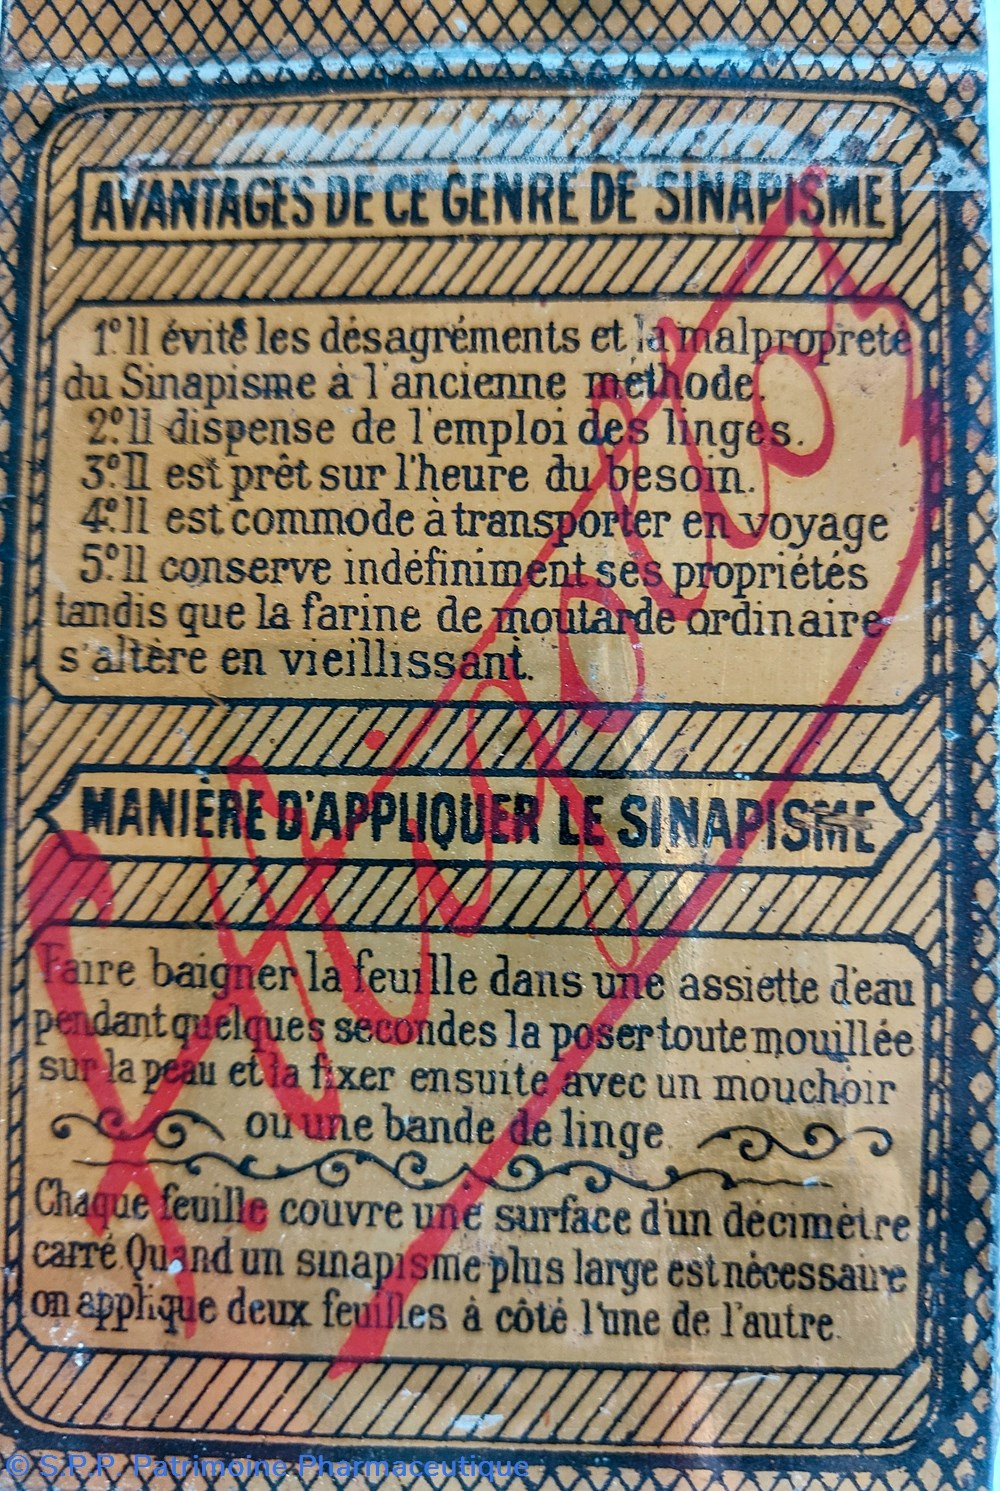 AVANTAGES DE CE GENRE DE SINAPISME
1º Il évite les désagréments et la malpropreté
du Sinapisme à l'ancienne méthode.
2º Il dispense de l'emploi des linges.
3º Il est prêt sur l'heure du besoin.
4º Il est commode à transporter en voyage
5º Il conserve indéfiniment ses propriétés
tandis que la farine de moutarde ordinaire
s'altère en vieillissant.
MANIÈRE D'APPLIQUER LE SINAPISME
Faire baigner la feuille dans une assiette d'eau
pendant quelques secondes la poser toute mouillée
sur la peau et la fixer ensuite avec un mouchoir
ou une bande de linge.
Chaque feuille couvre une surface d'un décimètre
carré. Quand un sinapisme plus large est nécessaire
on applique deux feuilles à côté l'une de l'autre.
© S.P.P. Patrimoine Pharmaceutique